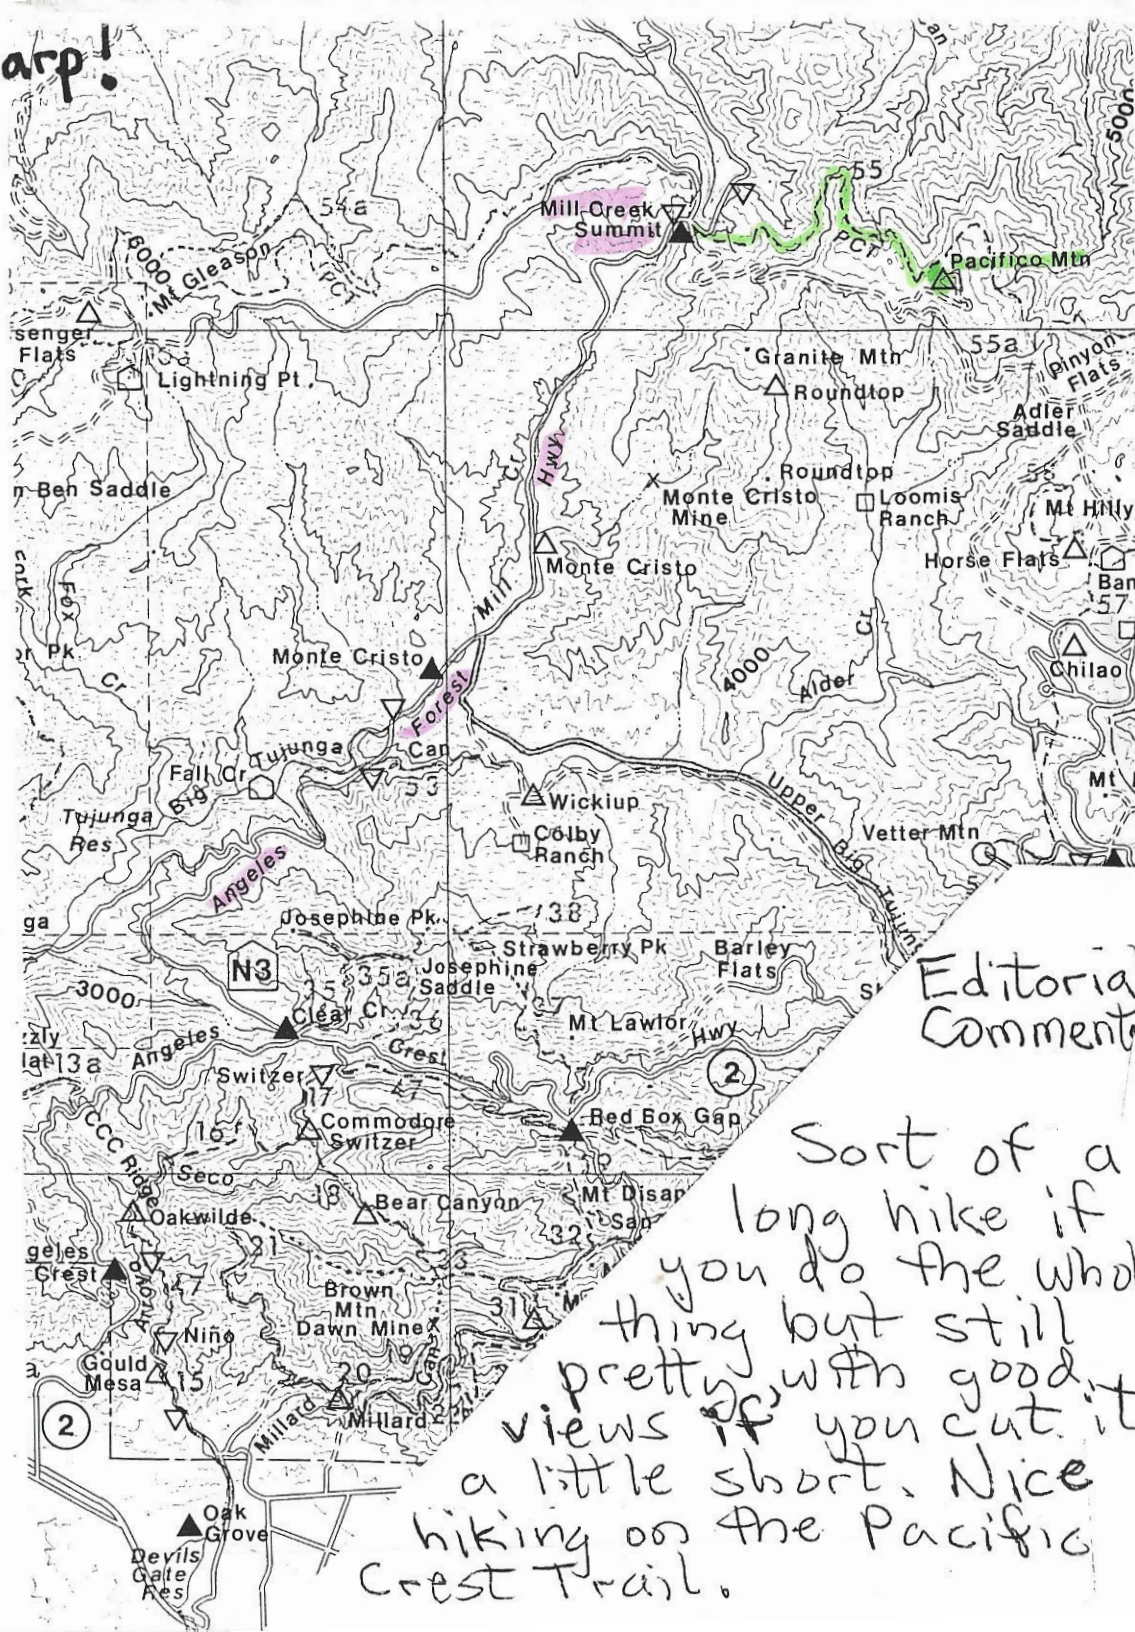 arp!
an
5000
55
54a
Mill Creek
Summit
PCT
Pacifico Mtn
6000
Mt Gleason
PCT
senger
Flats
Lightning Pt.
Granite Mtn
Roundtop
55a
Pinyon
Flats
Adler
Saddle
Cr
Hwy
n Ben Saddle
Monte Cristo
Mine
Roundtop
Loomis
Ranch
Mt Hilly
Horse Flats
Ban
57
Monte Cristo
Mill
Fox
Cr
or Pk
Monte Cristo
Forest
4000
Alder
Cr
Chilao
Tujunga
Can
53
Fall Cr
Big
Tujunga
Res
Wickiup
Colby
Ranch
Upper
Big
Tujung
Mt
Vetter Mtn
Angeles
ga
Josephine Pk
38
Strawberry Pk
Barley
Flats
N3
35
35a
Josephine
Saddle
St
3000
Clear Cr
36
Mt Lawlor
Hwy
zzly
lat
13a
Angeles
Crest
2
Switzer
17
47
Commodore
Switzer
Red Box Gap
CCC Ridge
16
Seco
18
Bear Canyon
Mt Disap
San
Oakwilde
21
32
geles
Crest
Arroyo
47
Brown
Mtn
Dawn Mine
31
Niño
Gould
Mesa
15
20
Can
Millard
Millard
2
Oak
Grove
Devils
Gate
Res
Editoria
Comment
Sort of a
long hike if
you do the whol
thing but still
pretty, with good
views if you cut it
a little short. Nice
hiking on the Pacific
Crest Trail.